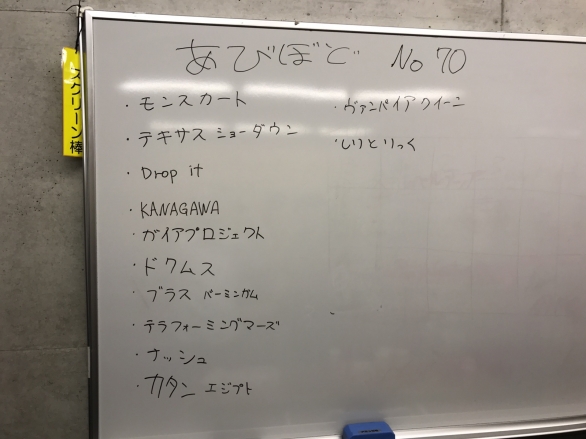 あびぼど No 70
スクリーン棒
・モンスカート
・テキサスショーダウン
・Drop it
・KANAGAWA
・ガイアプロジェクト
・ドクムス
・ブラス バーミンガム
・テラフォーミングマーズ
・ナッシュ
・カタン エジプト
・ヴァンパイアクイーン
・しりとりっく